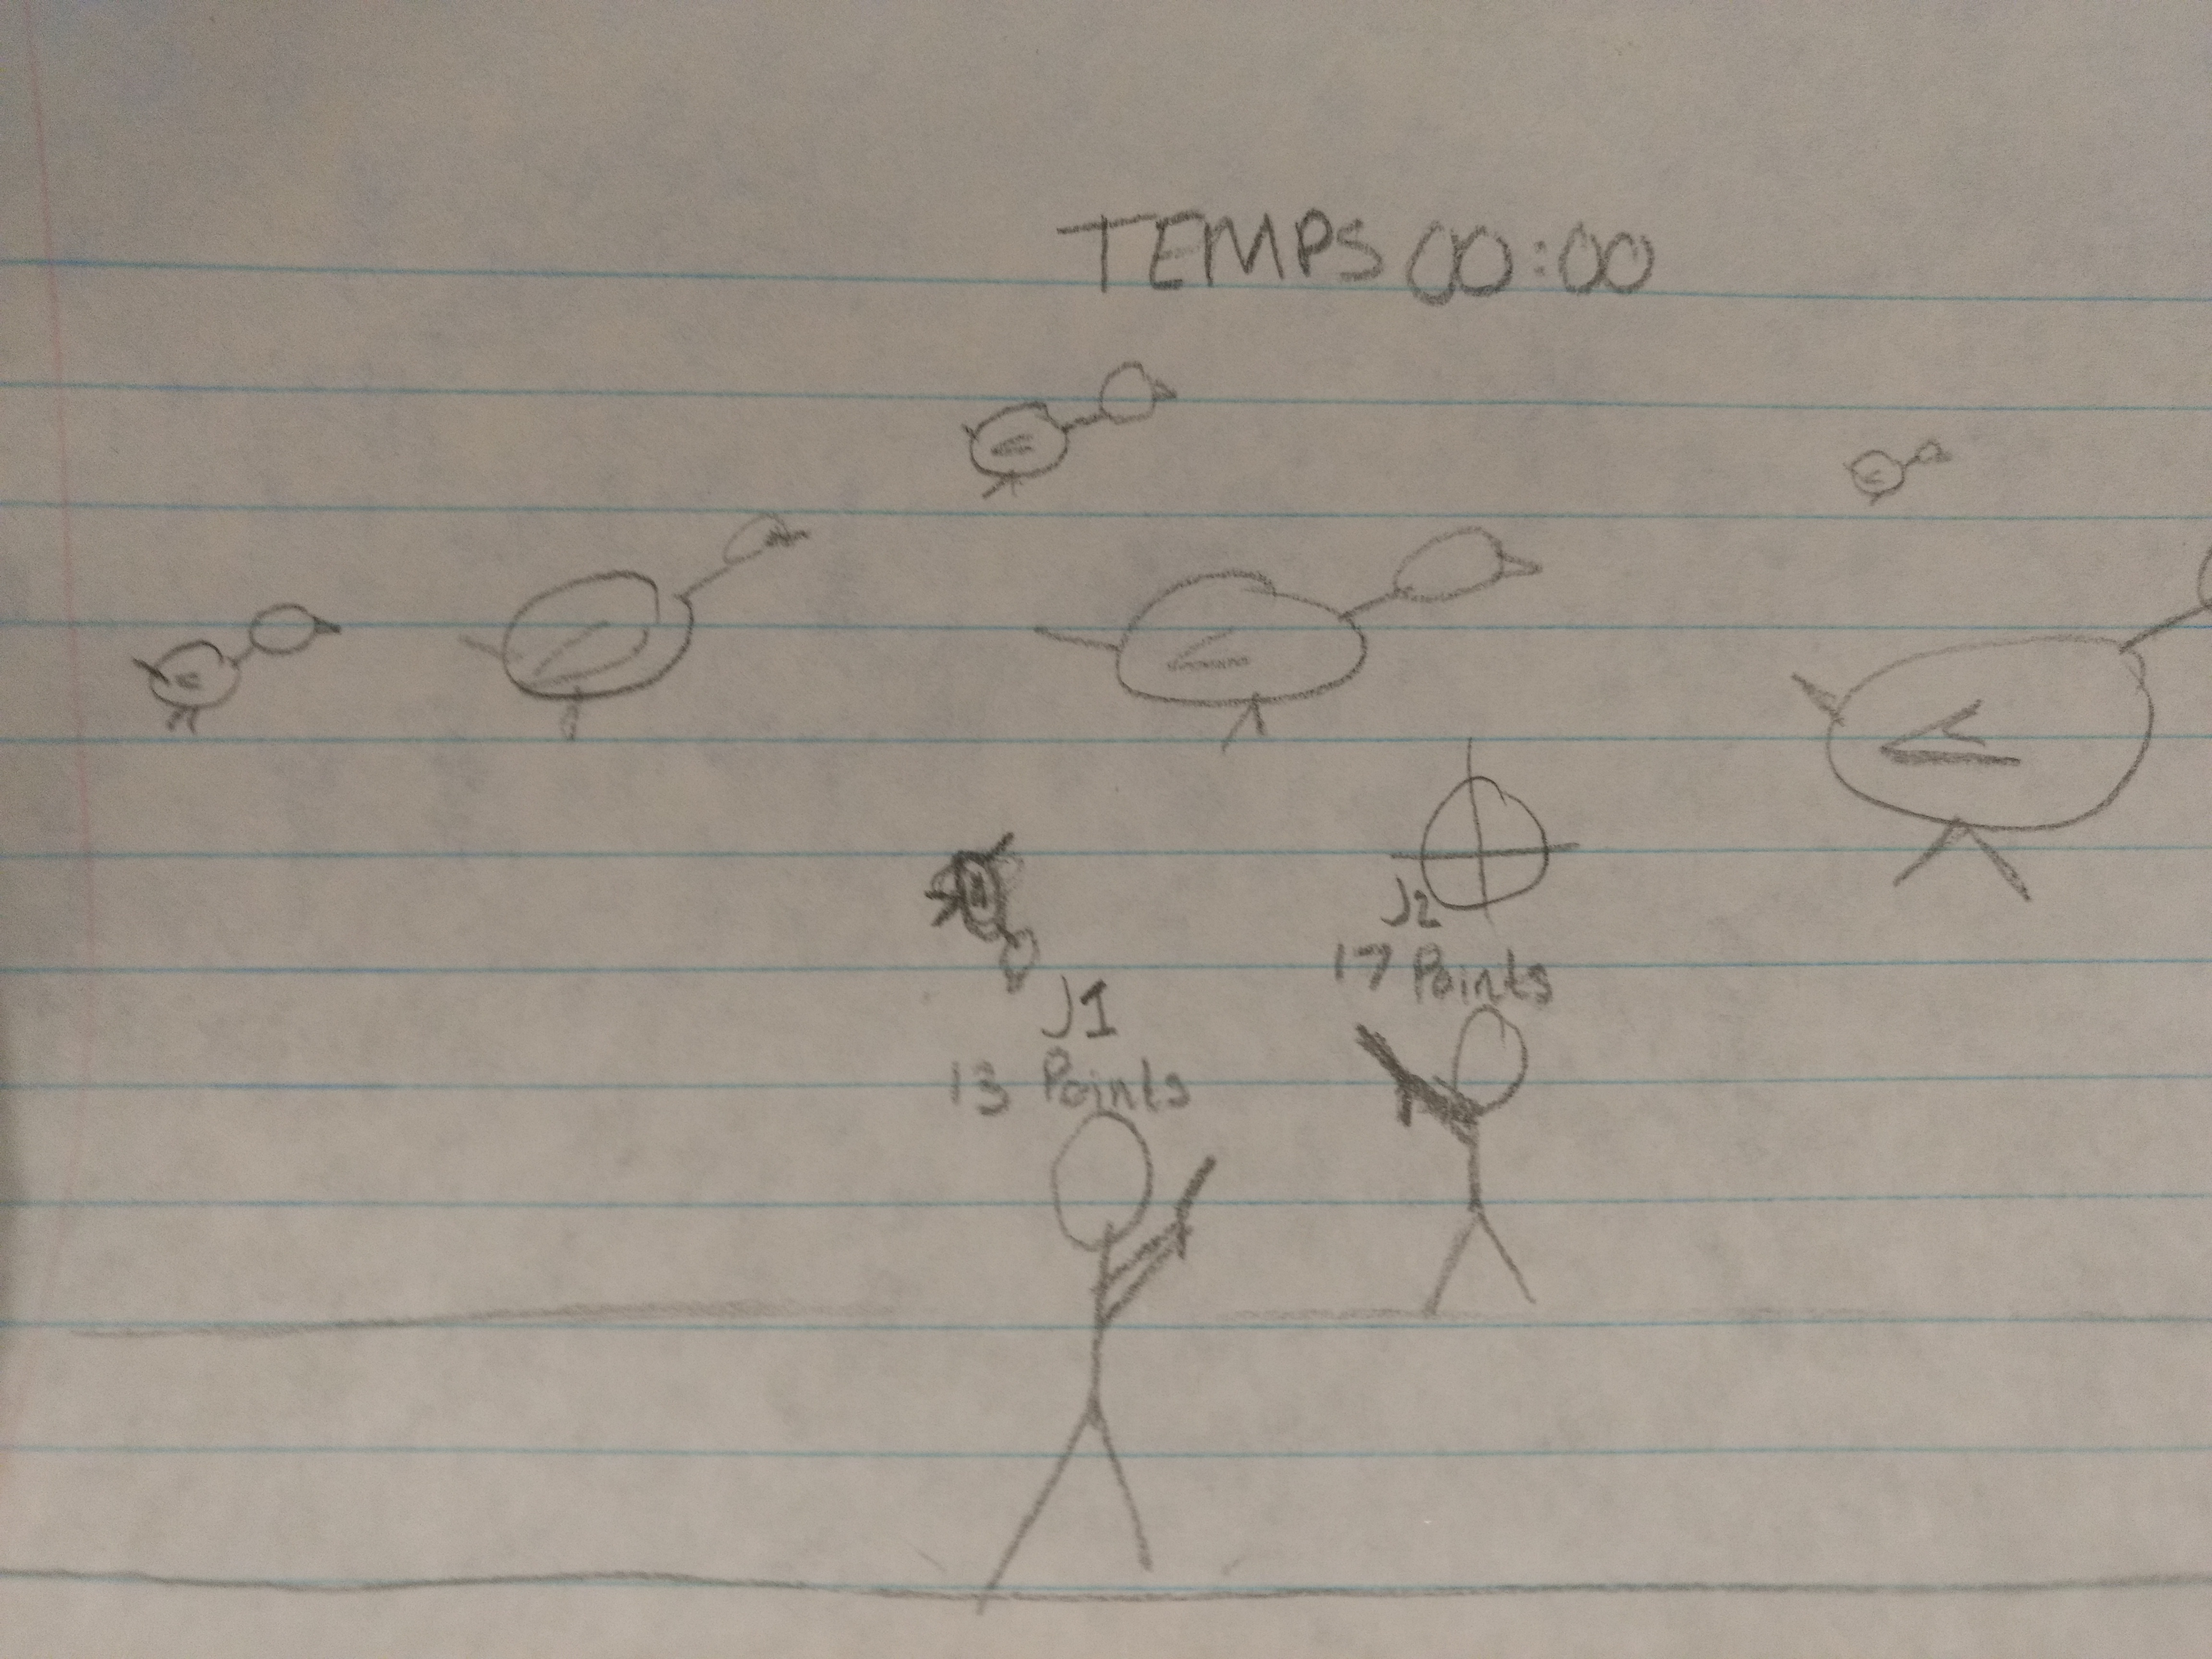 TEMPS 00:00
J2
17 Points
J1
13 Points